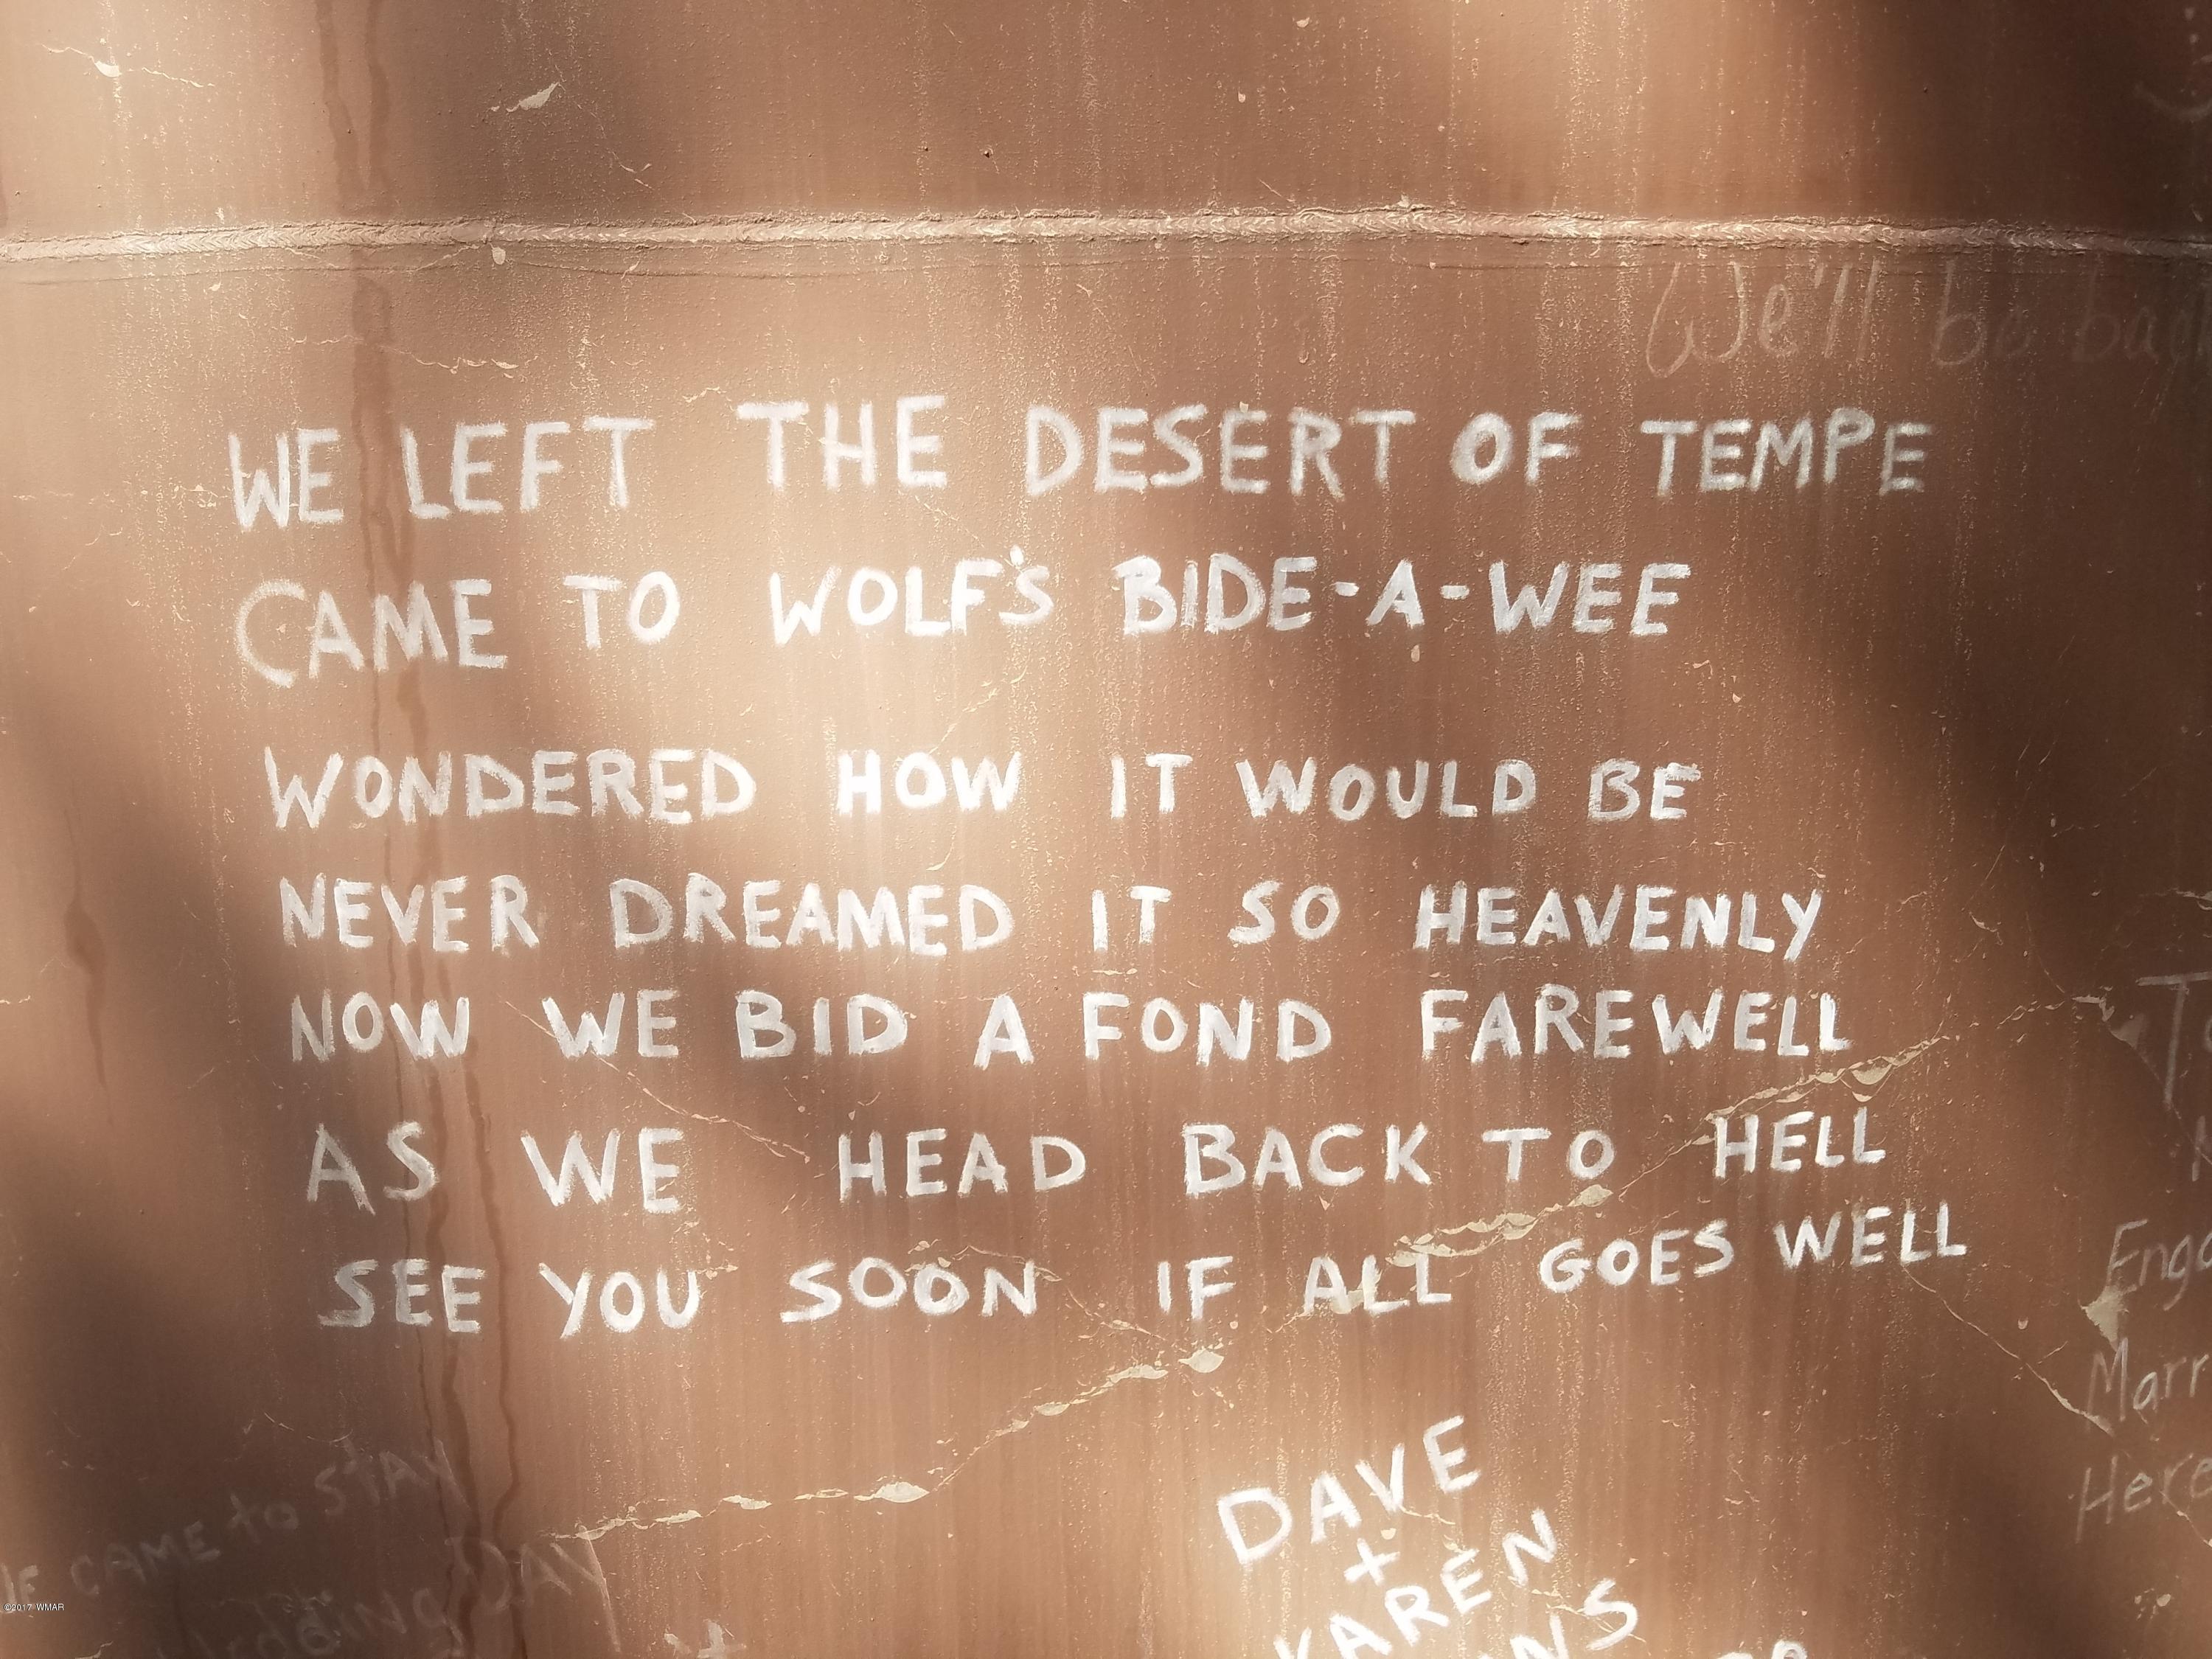 We'll be back
WE LEFT THE DESERT OF TEMPE
CAME TO WOLF'S BIDE-A-WEE
WONDERED HOW IT WOULD BE
NEVER DREAMED IT SO HEAVENLY
NOW WE BID A FOND FAREWELL
AS WE HEAD BACK TO HELL
SEE YOU SOON IF ALL GOES WELL
DAVE
+
KAREN
CAME to STAY
DAY
Here
©2017 WMAR